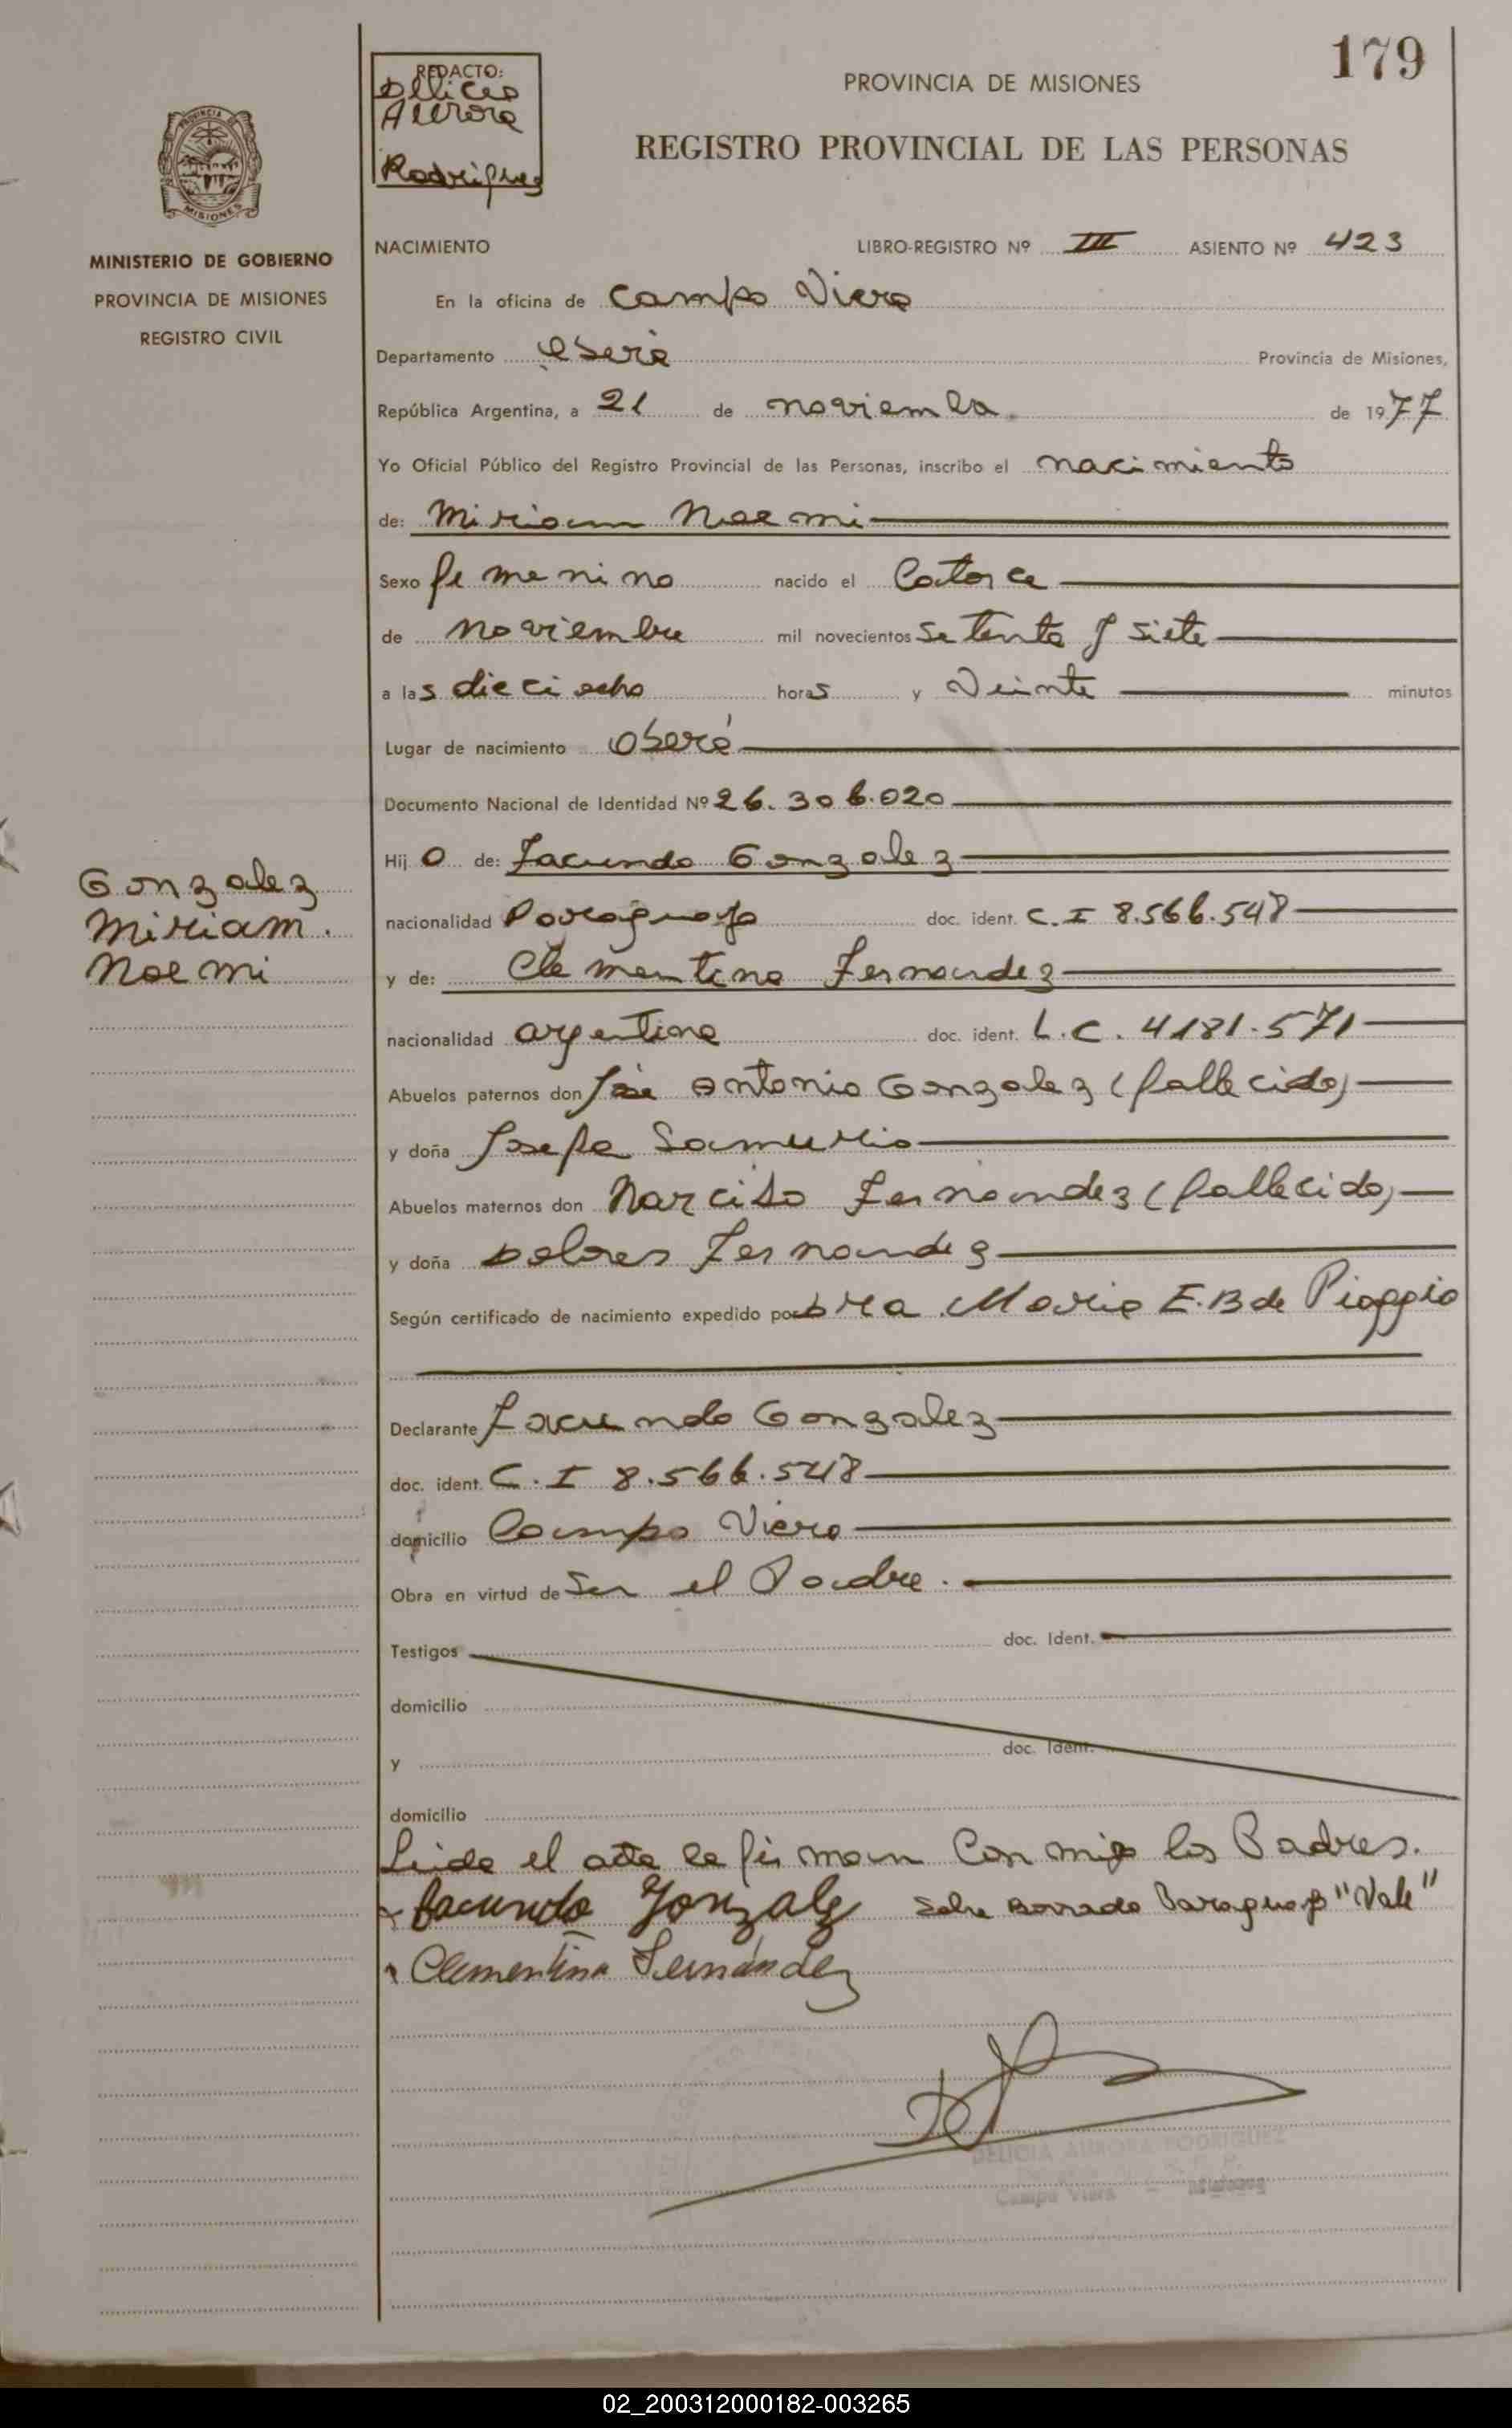 179
REDACTO:
Delicia
Aurora
Rodriguez
PROVINCIA DE MISIONES
REGISTRO PROVINCIAL DE LAS PERSONAS
PROVINCIA DE MISIONES
MINISTERIO DE GOBIERNO
PROVINCIA DE MISIONES
REGISTRO CIVIL
NACIMIENTO LIBRO-REGISTRO Nº III ASIENTO Nº 423
En la oficina de Campo Viera
Departamento Oberá Provincia de Misiones,
República Argentina, a 21 de noviembre de 1977
Yo Oficial Público del Registro Provincial de las Personas, inscribo el nacimiento
de: Miriam Noemi
Sexo femenino nacido el Catorce
de noviembre mil novecientos setenta y siete
a las dieciocho horas y Veinte minutos
Lugar de nacimiento Oberá
Documento Nacional de Identidad Nº 26.306.020
Hijo de: Facundo Gonzalez
Gonzalez
Miriam.
Noemi
nacionalidad Paraguayo doc. ident. C.I 8.566.548
y de: Clementina Fernandez
nacionalidad argentina doc. ident. L.C. 4181.571
Abuelos paternos don José Antonio Gonzalez (fallecido)
y doña Josefa Samurrio
Abuelos maternos don Narciso Fernandez (fallecido)
y doña Dolores Fernandez
Según certificado de nacimiento expedido por Dra Maria E.B de Pioppio
Declarante Facundo Gonzalez
doc. ident. C.I 8.566.548
domicilio Campo Viera
Obra en virtud de Ser el Padre.
Testigos doc. Ident.
domicilio
y doc. Ident.
domicilio
Leida el acta la firman Con migo los Padres.
Facundo Gonzalez Sobre Borrado Paraguayo "Vale"
Clementina Fernández
DELICIA AURORA RODRIGUEZ
Campo Viera - Misiones
02_200312000182-003265